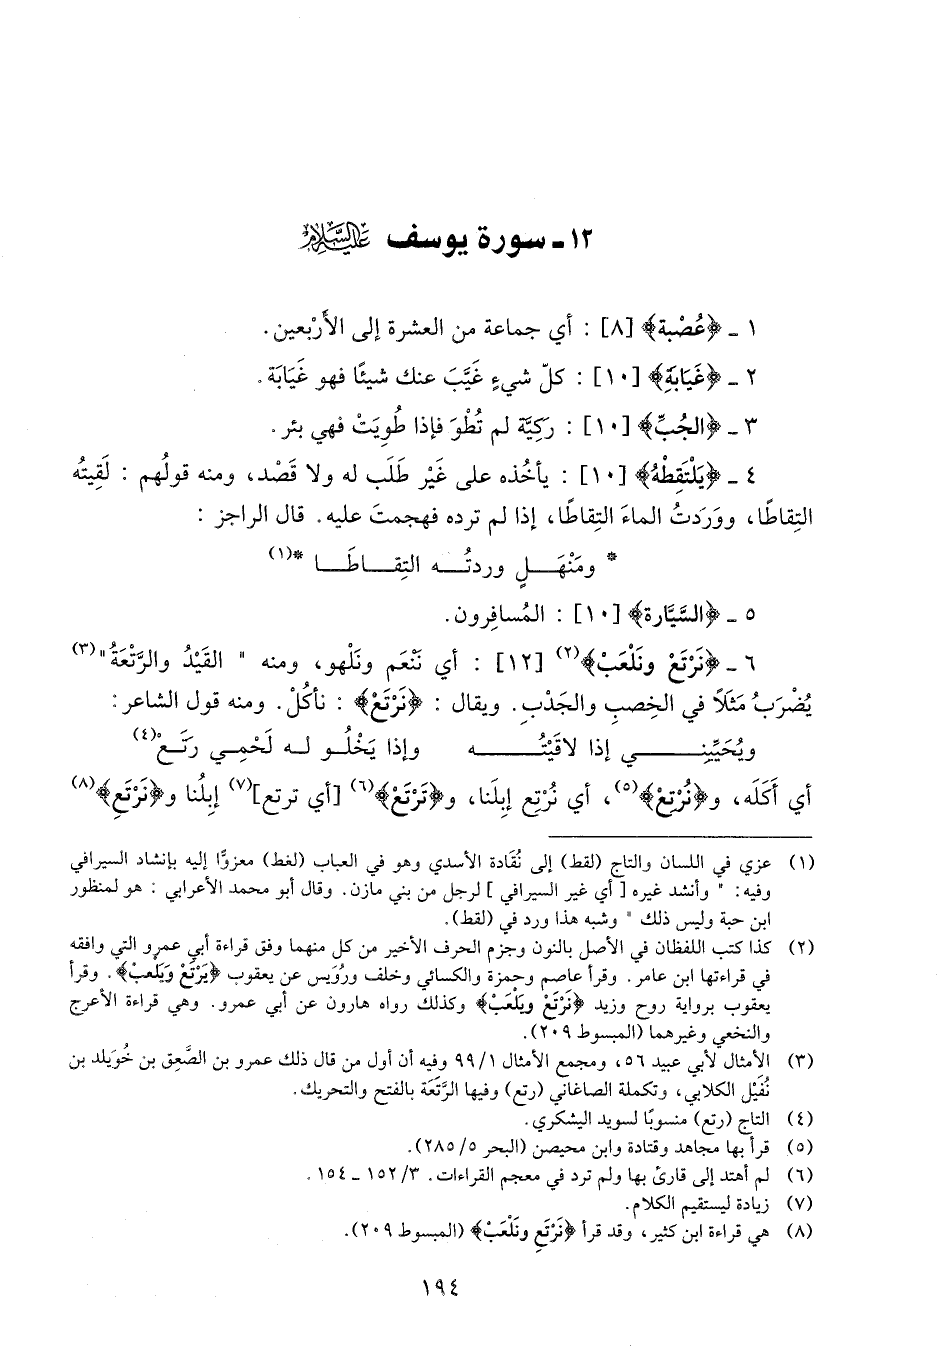 ١٢ - سورة يوسف عليه السلام
١ - ﴿عُصْبة﴾ [٨] : أي جماعة من العشرة إلى الأَرْبعين.
٢ - ﴿غَيَابَةِ﴾ [١٠] : كلّ شيءٍ غَيَّبَ عنك شيئًا فهو غَيَابَة.
٣ - ﴿الجُبِّ﴾ [١٠] : رَكِيَّة لم تُطْوَ فإذا طُويَتْ فهي بئر.
٤ - ﴿يَلْتَقِطْهُ﴾ [١٠] : يأخُذه على غَيْر طَلَب له ولا قَصْد، ومنه قولُهم : لَقِيتُه
التِقاطًا، ووَرَدتُ الماءَ التِقاطًا، إذا لم ترده فهجمتَ عليه. قال الراجز :
* ومَنْهَـــلٍ وردتُـــه التِقـــاطَـــا *(١)
٥ - ﴿السَّيَّارة﴾ [١٠] : المُسافِرون.
٦ - ﴿نَرْتَعْ ونَلْعَبْ﴾(٢) [١٢] : أي نَنْعَم ونَلهو، ومنه " القَيْدُ والرَّتْعَةُ "(٣)
يُضْرَبُ مَثَلاً في الخِصبِ والجَدْبِ. ويقال : ﴿نَرْتَعْ﴾ : نأكُلْ. ومنه قول الشاعر :
ويُحَيِّينِـــــي إذا لاقَيْتُـــــه وإذا يَخْلُــو لــه لَحْمِــي رَتَــعْ(٤)
أي أَكَلَه، و﴿نُرْتِعْ﴾(٥)، أي نُرْتِع إبِلَنا، و﴿تَرْتَعْ﴾(٦) [أي ترتع](٧) إبِلُنا و﴿نَرْتَعِ﴾(٨)
(١) عزي في اللسان والتاج (لقط) إلى نُقَادة الأسدي وهو في العباب (لغط) معزوًّا إليه بإنشاد السيرافي
وفيه: " وأنشد غيره [ أي غير السيرافي ] لرجل من بني مازن. وقال أبو محمد الأعرابي : هو لمنظور
ابن حبة وليس ذلك " وشبه هذا ورد في (لقط).
(٢) كذا كتب اللفظان في الأصل بالنون وجزم الحرف الأخير من كل منهما وفق قراءة أبي عمرو التي وافقه
في قراءتها ابن عامر. وقرأ عاصم وحمزة والكسائي وخلف ورُوَيس عن يعقوب ﴿يَرْتَعْ وَيَلْعبْ﴾. وقرأ
يعقوب برواية روح وزيد ﴿نَرْتَعْ ويَلْعَبْ﴾ وكذلك رواه هارون عن أبي عمرو. وهي قراءة الأعرج
والنخعي وغيرهما (المبسوط ٢٠٩).
(٣) الأمثال لأبي عبيد ٥٦، ومجمع الأمثال ٩٩/١ وفيه أن أول من قال ذلك عمرو بن الصَّعِق بن خُوَيلد بن
نُفَيْل الكلابي، وتكملة الصاغاني (رتع) وفيها الرَّتَعَة بالفتح والتحريك.
(٤) التاج (رتع) منسوبًا لسويد اليشكري.
(٥) قرأ بها مجاهد وقتادة وابن محيصن (البحر ٢٨٥/٥).
(٦) لم أهتد إلى قارئ بها ولم ترد في معجم القراءات. ١٥٢/٣ - ١٥٤ .
(٧) زيادة ليستقيم الكلام.
(٨) هي قراءة ابن كثير، وقد قرأ ﴿نَرْتَعِ ونَلْعَبْ﴾ (المبسوط ٢٠٩).
١٩٤